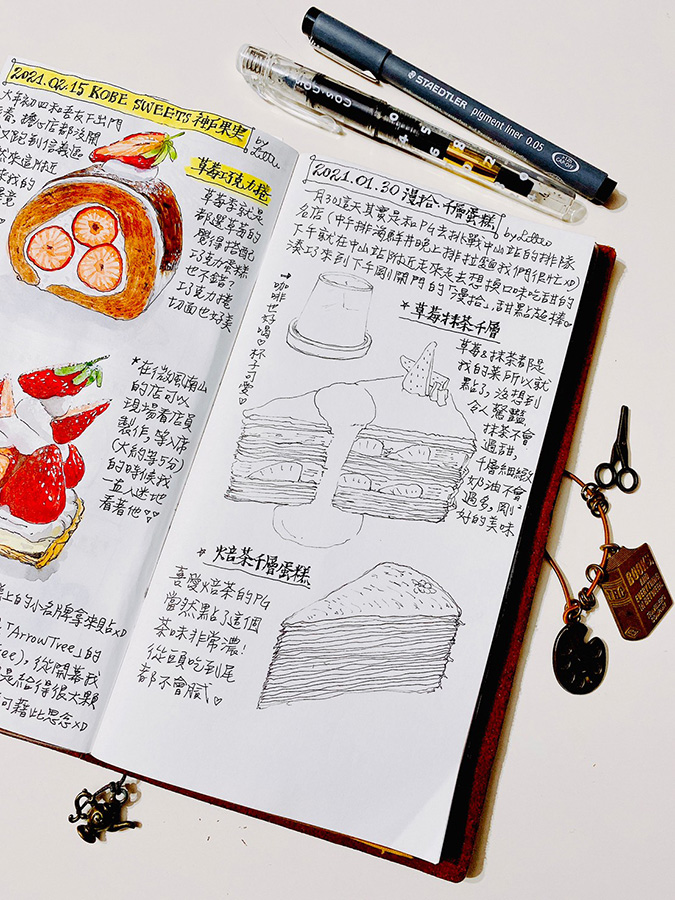 2021.02.15 KOBE SWEETS 神戶果実
by Lottee
大年初四和吾友下出門
店都沒開
又跑到信義區
草莓巧克力捲
草莓季就是
都選草莓的
覺得搭配
巧克力蛋糕
也不錯?
巧克力捲
切面也好美
*在微風南山
的店可以
現場看店員
製作,等入席
(大約等5分)
的時候我
一直入迷地
看著他♡♡
上的小名牌拿來貼xD
「ArrowTree」的
從開幕我
是給得很大顆
可藉此思念xD
2021.01.30 漫拾.千層蛋糕
by Lottee
一月30這天其實是和PG去挑戰中山站的排隊
名店(中午排海鮮丼晚上排拉麵我們很忙xD)
下午就在中山站附近走來走去想換口味吃甜的
湊巧來到下午剛開門的「漫拾」,甜點超棒♡
→咖啡也好喝♡杯子可愛♡
*草莓抹茶千層
草莓&抹茶都是
我的菜所以就
點了,沒想到
令人驚豔
抹茶不會
過甜,
千層細緻
奶油不會
過多,剛2
好的美味
*焙茶千層蛋糕
喜愛焙茶的PG
當然點了這個
茶味非常濃!
從頭吃到尾
都不會膩♡
STAEDTLER pigment liner 0.05